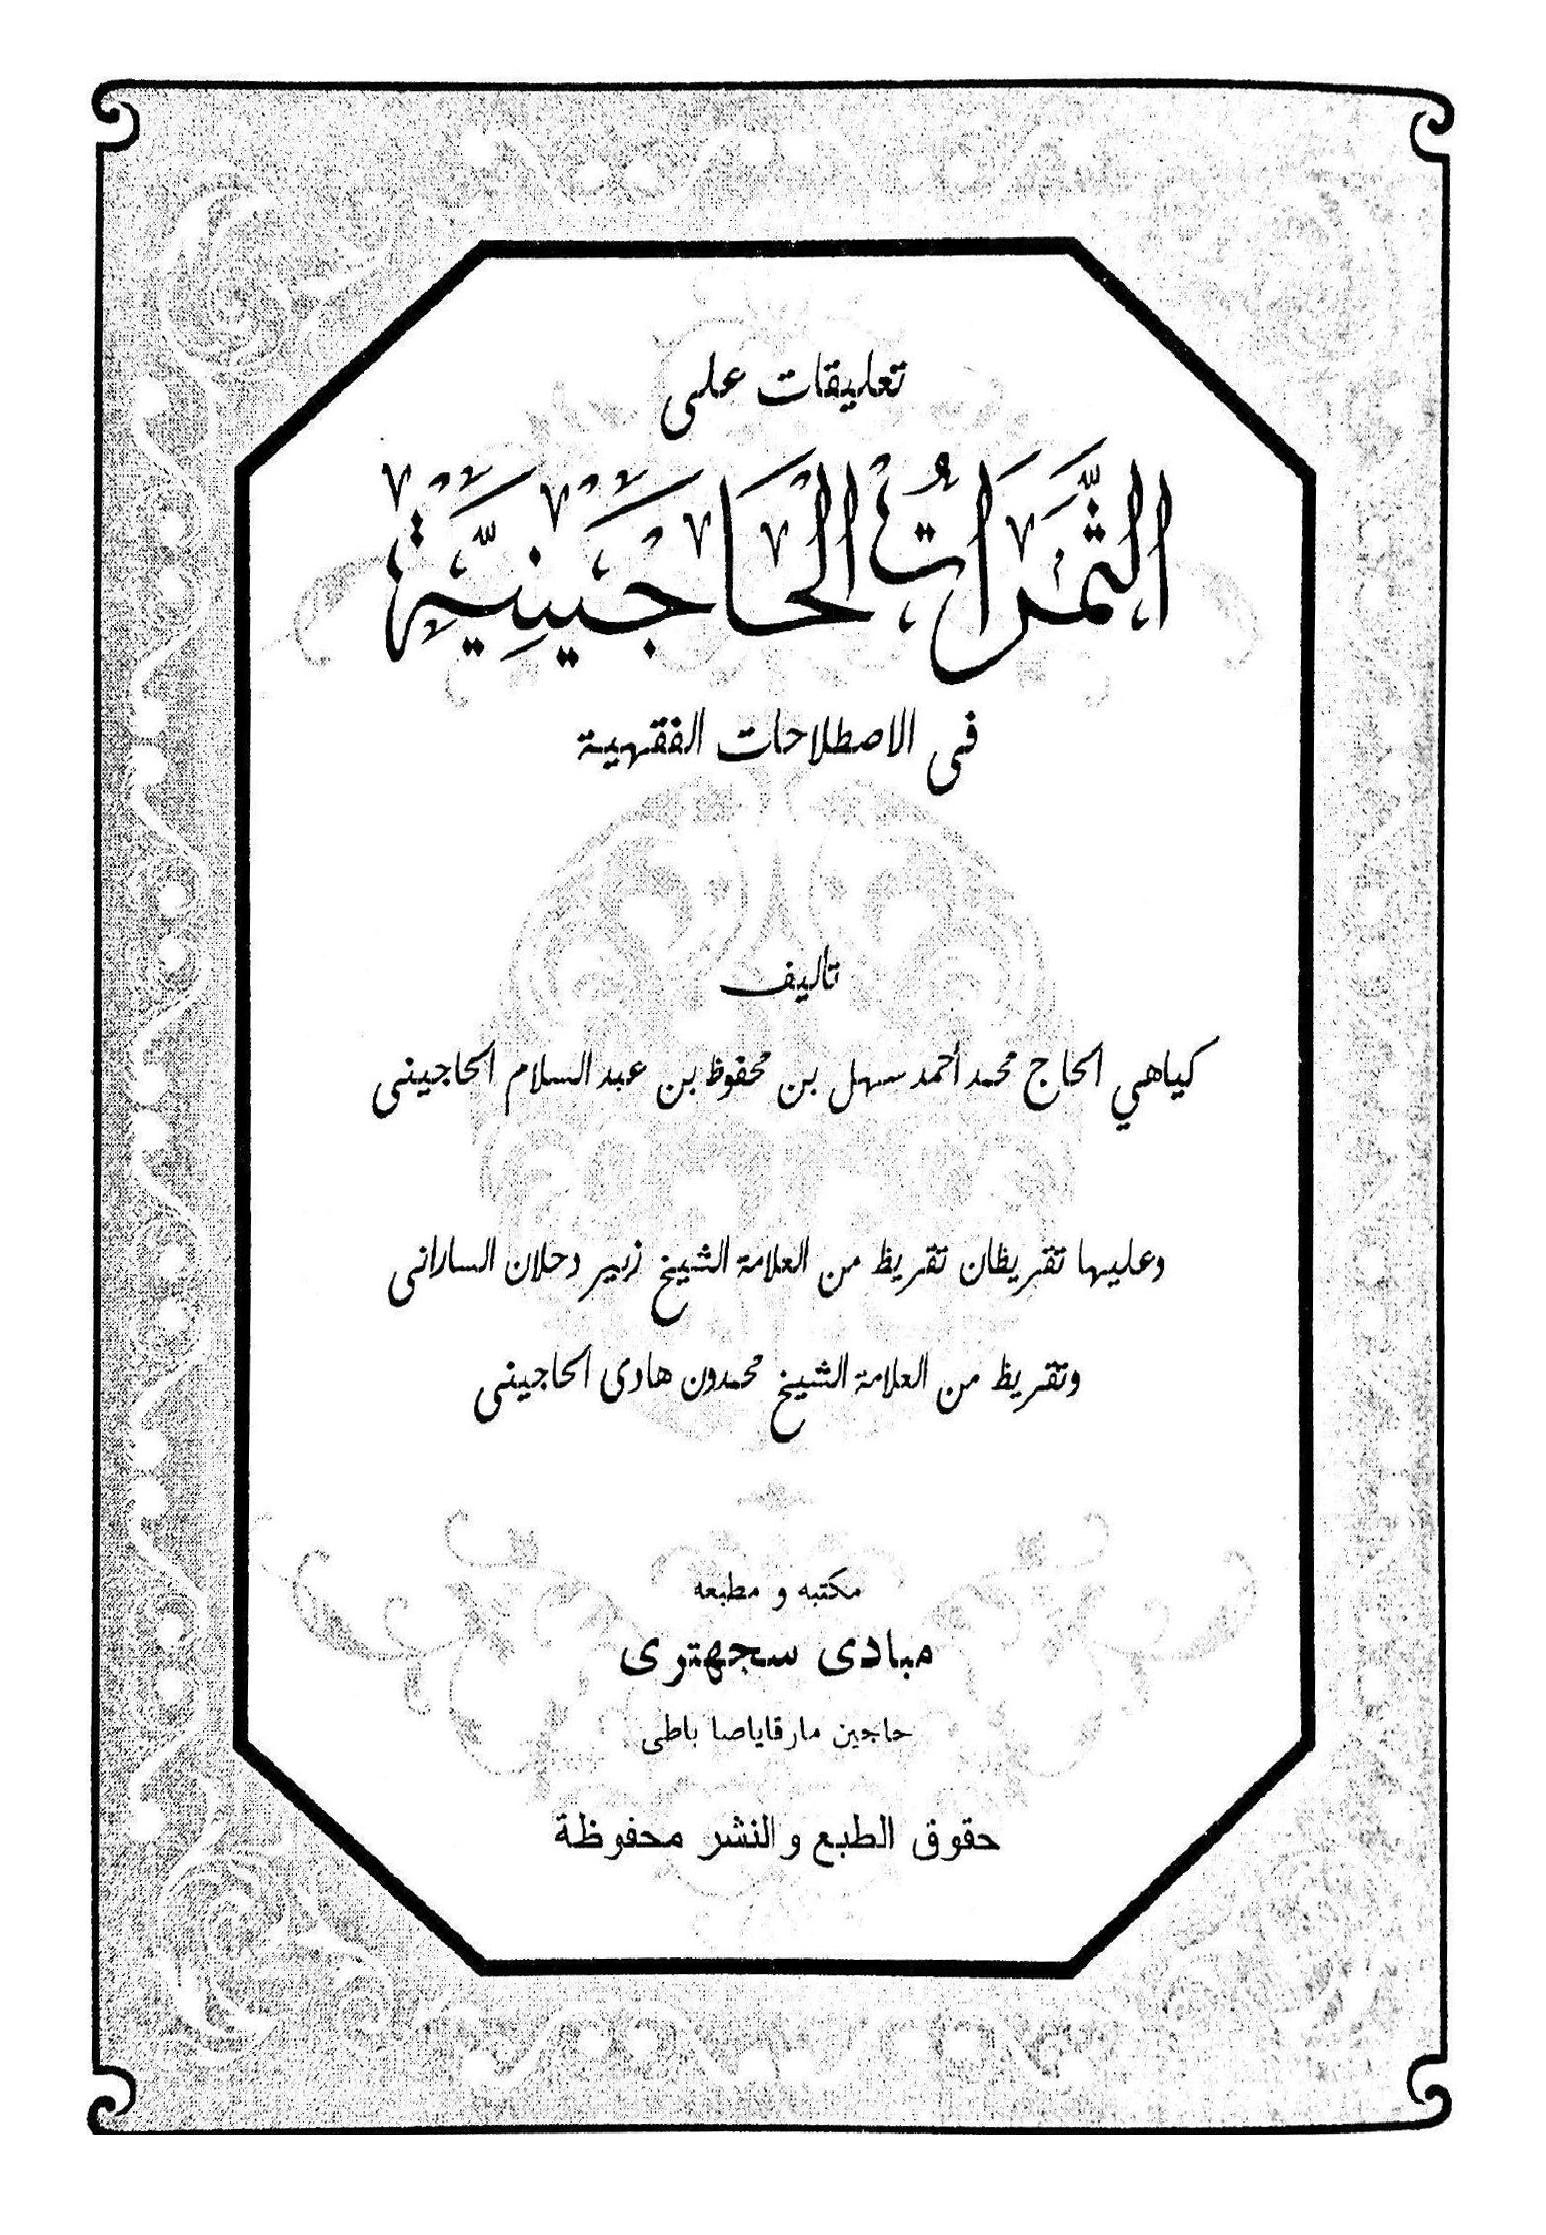 تعليقات على
الثَّمَرَاتُ الحَاجَيْنِيَّةُ
فى الاصطلاحات الفقهية
تأليف
كياهي الحاج محمد أحمد سهل بن محفوظ بن عبد السلام الحاجينى
وعليها تقريظان تقريظ من العلامة الشيخ زبير دحلان السارانى
وتقريظ من العلامة الشيخ محمدون هادى الحاجينى
مكتبه و مطبعه
مبادى سجهترى
حاجين مارقاياصا باطى
حقوق الطبع والنشر محفوظة